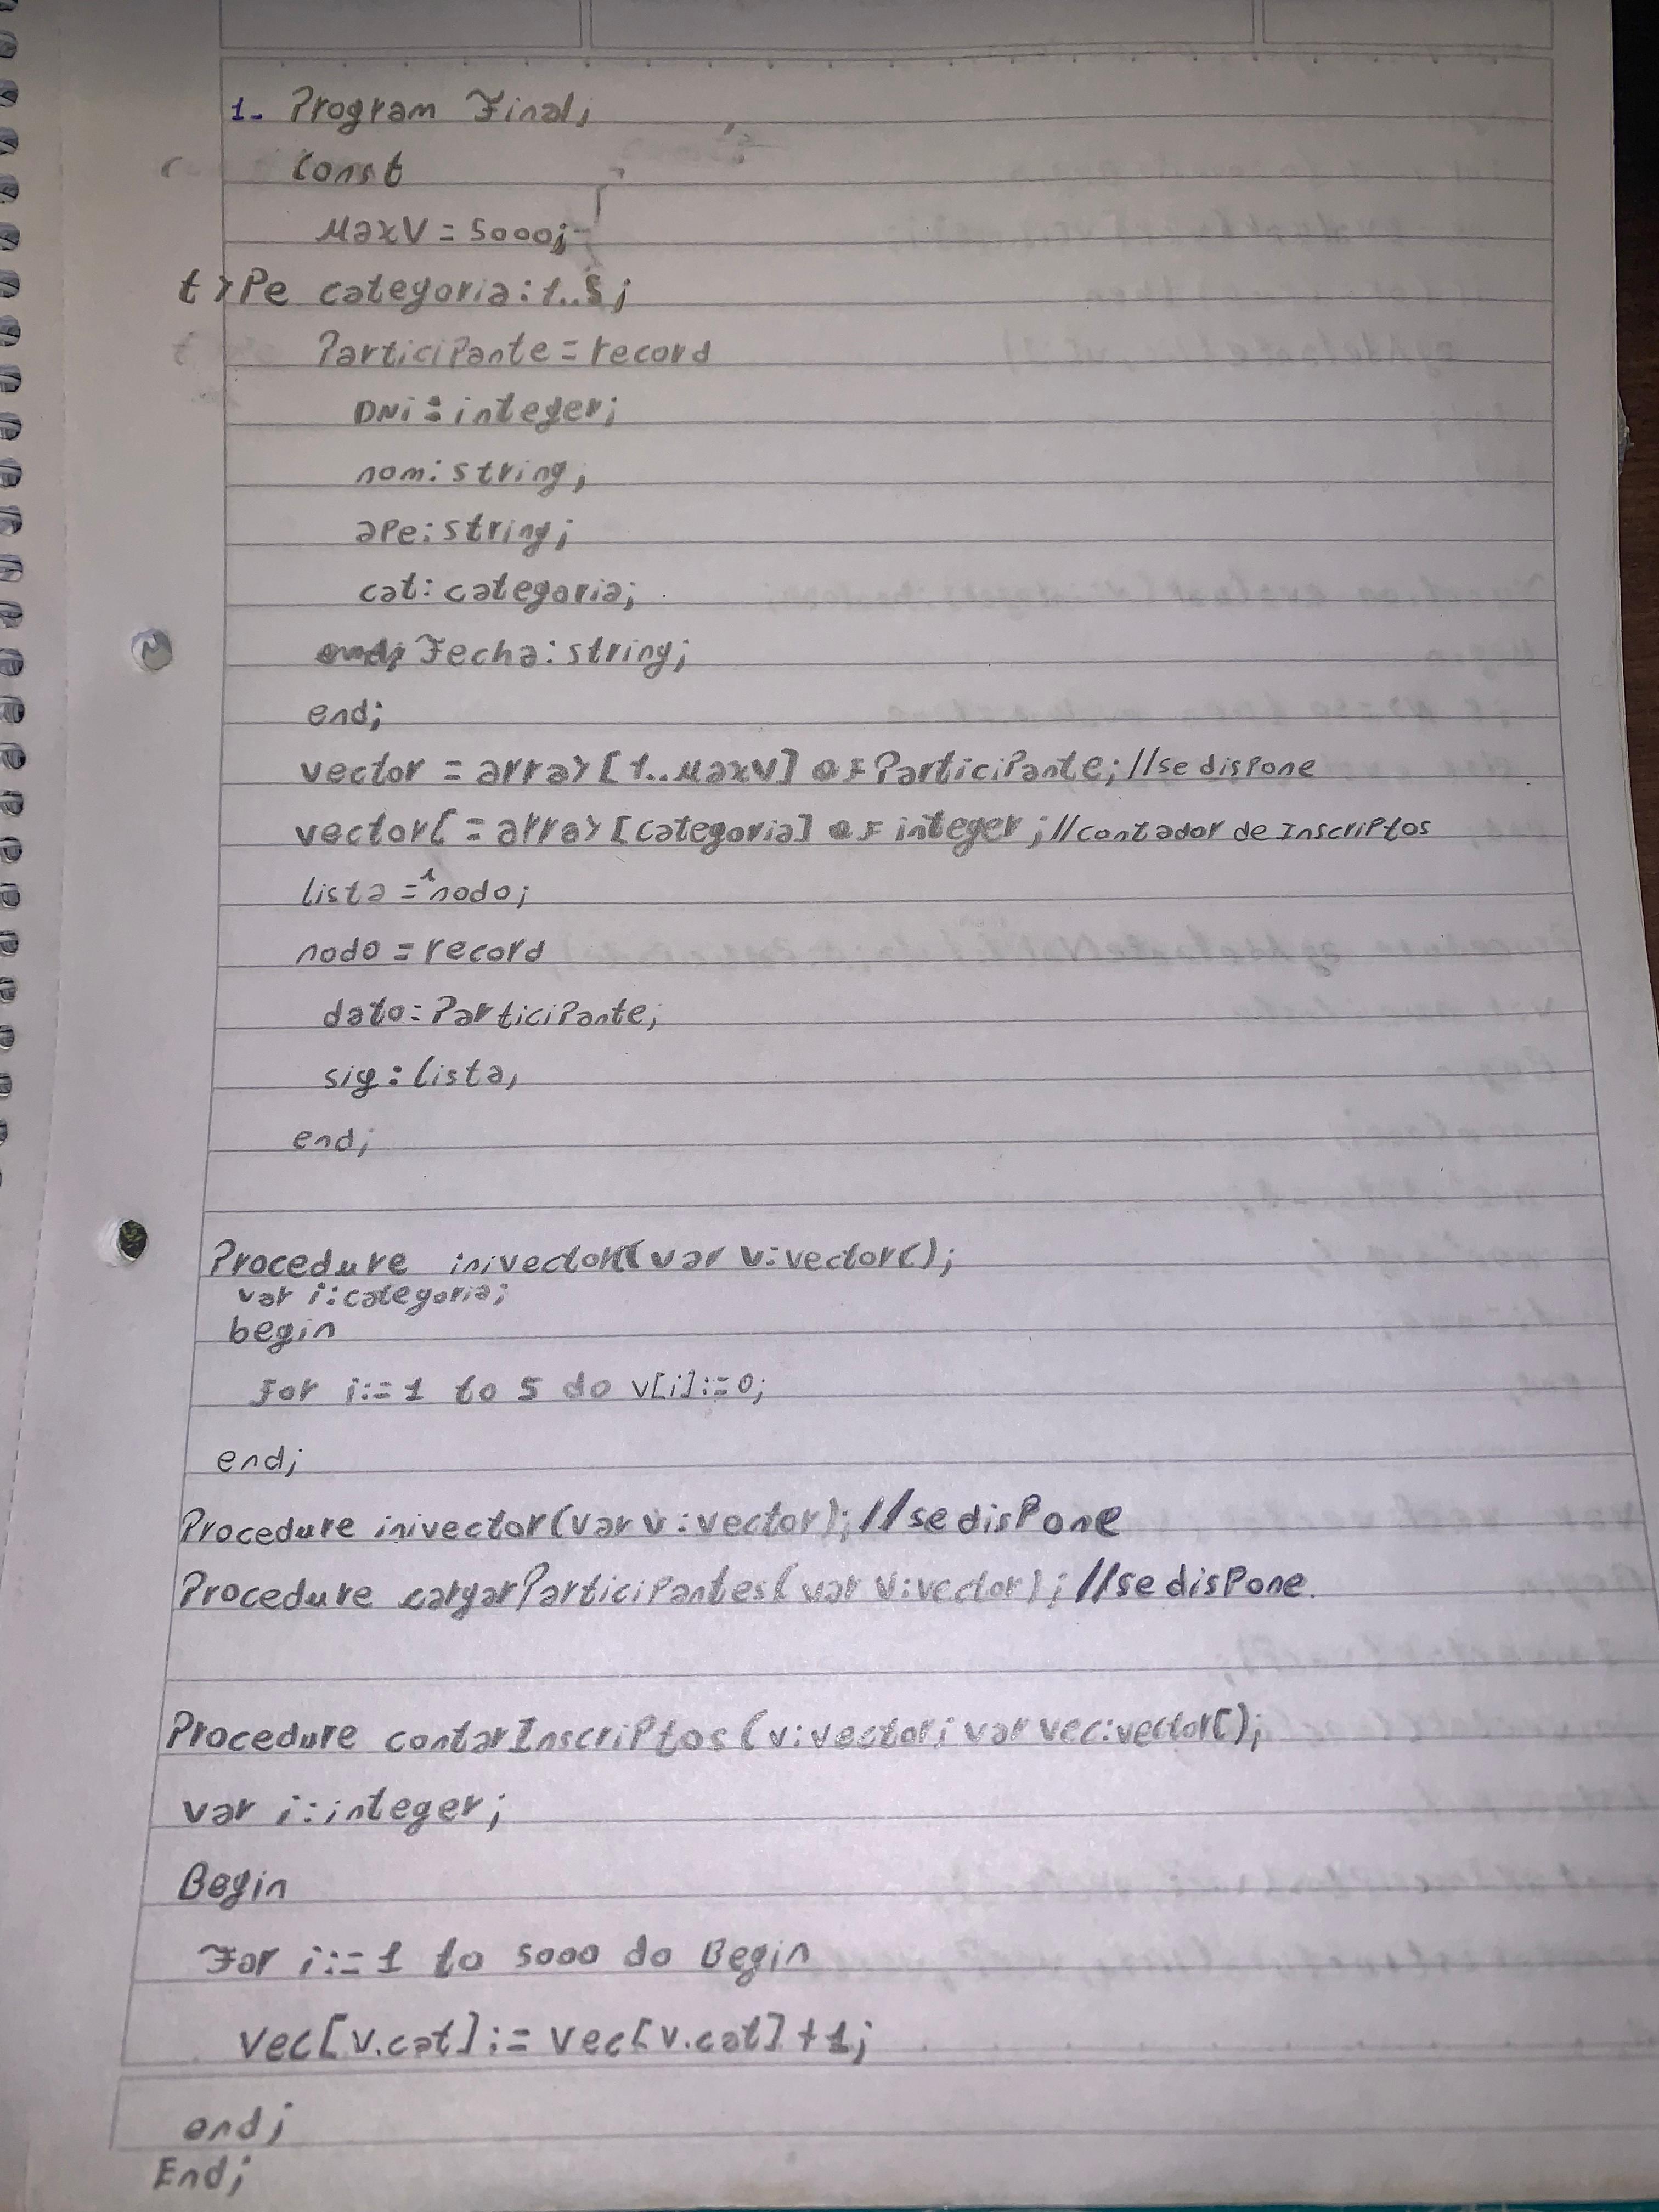 1- Program Final;
Const
MaxV = 5000;
type categoria: 1..5;
Participante = record
DNi: integer;
nom: string;
ape: string;
cat: categoria;
Fecha: string;
end;
vector = array [1..MaxV] of Participante; //se dispone
vectorC = array [categoria] of integer; //contador de Inscriptos
lista = ^nodo;
nodo = record
dato: Participante;
sig: lista;
end;
Procedure inivectorC(var v: vectorC);
var i: categoria;
begin
For i:= 1 to 5 do v[i]:=0;
end;
Procedure inivector(var v: vector); //se dispone
Procedure cargarParticipantes(var v: vector); //se dispone.
Procedure contarInscriptos (v: vector; var vec: vectorC);
var i: integer;
Begin
For i:= 1 to 5000 do Begin
vec[v.cat]:= vec[v.cat]+1;
end;
End;